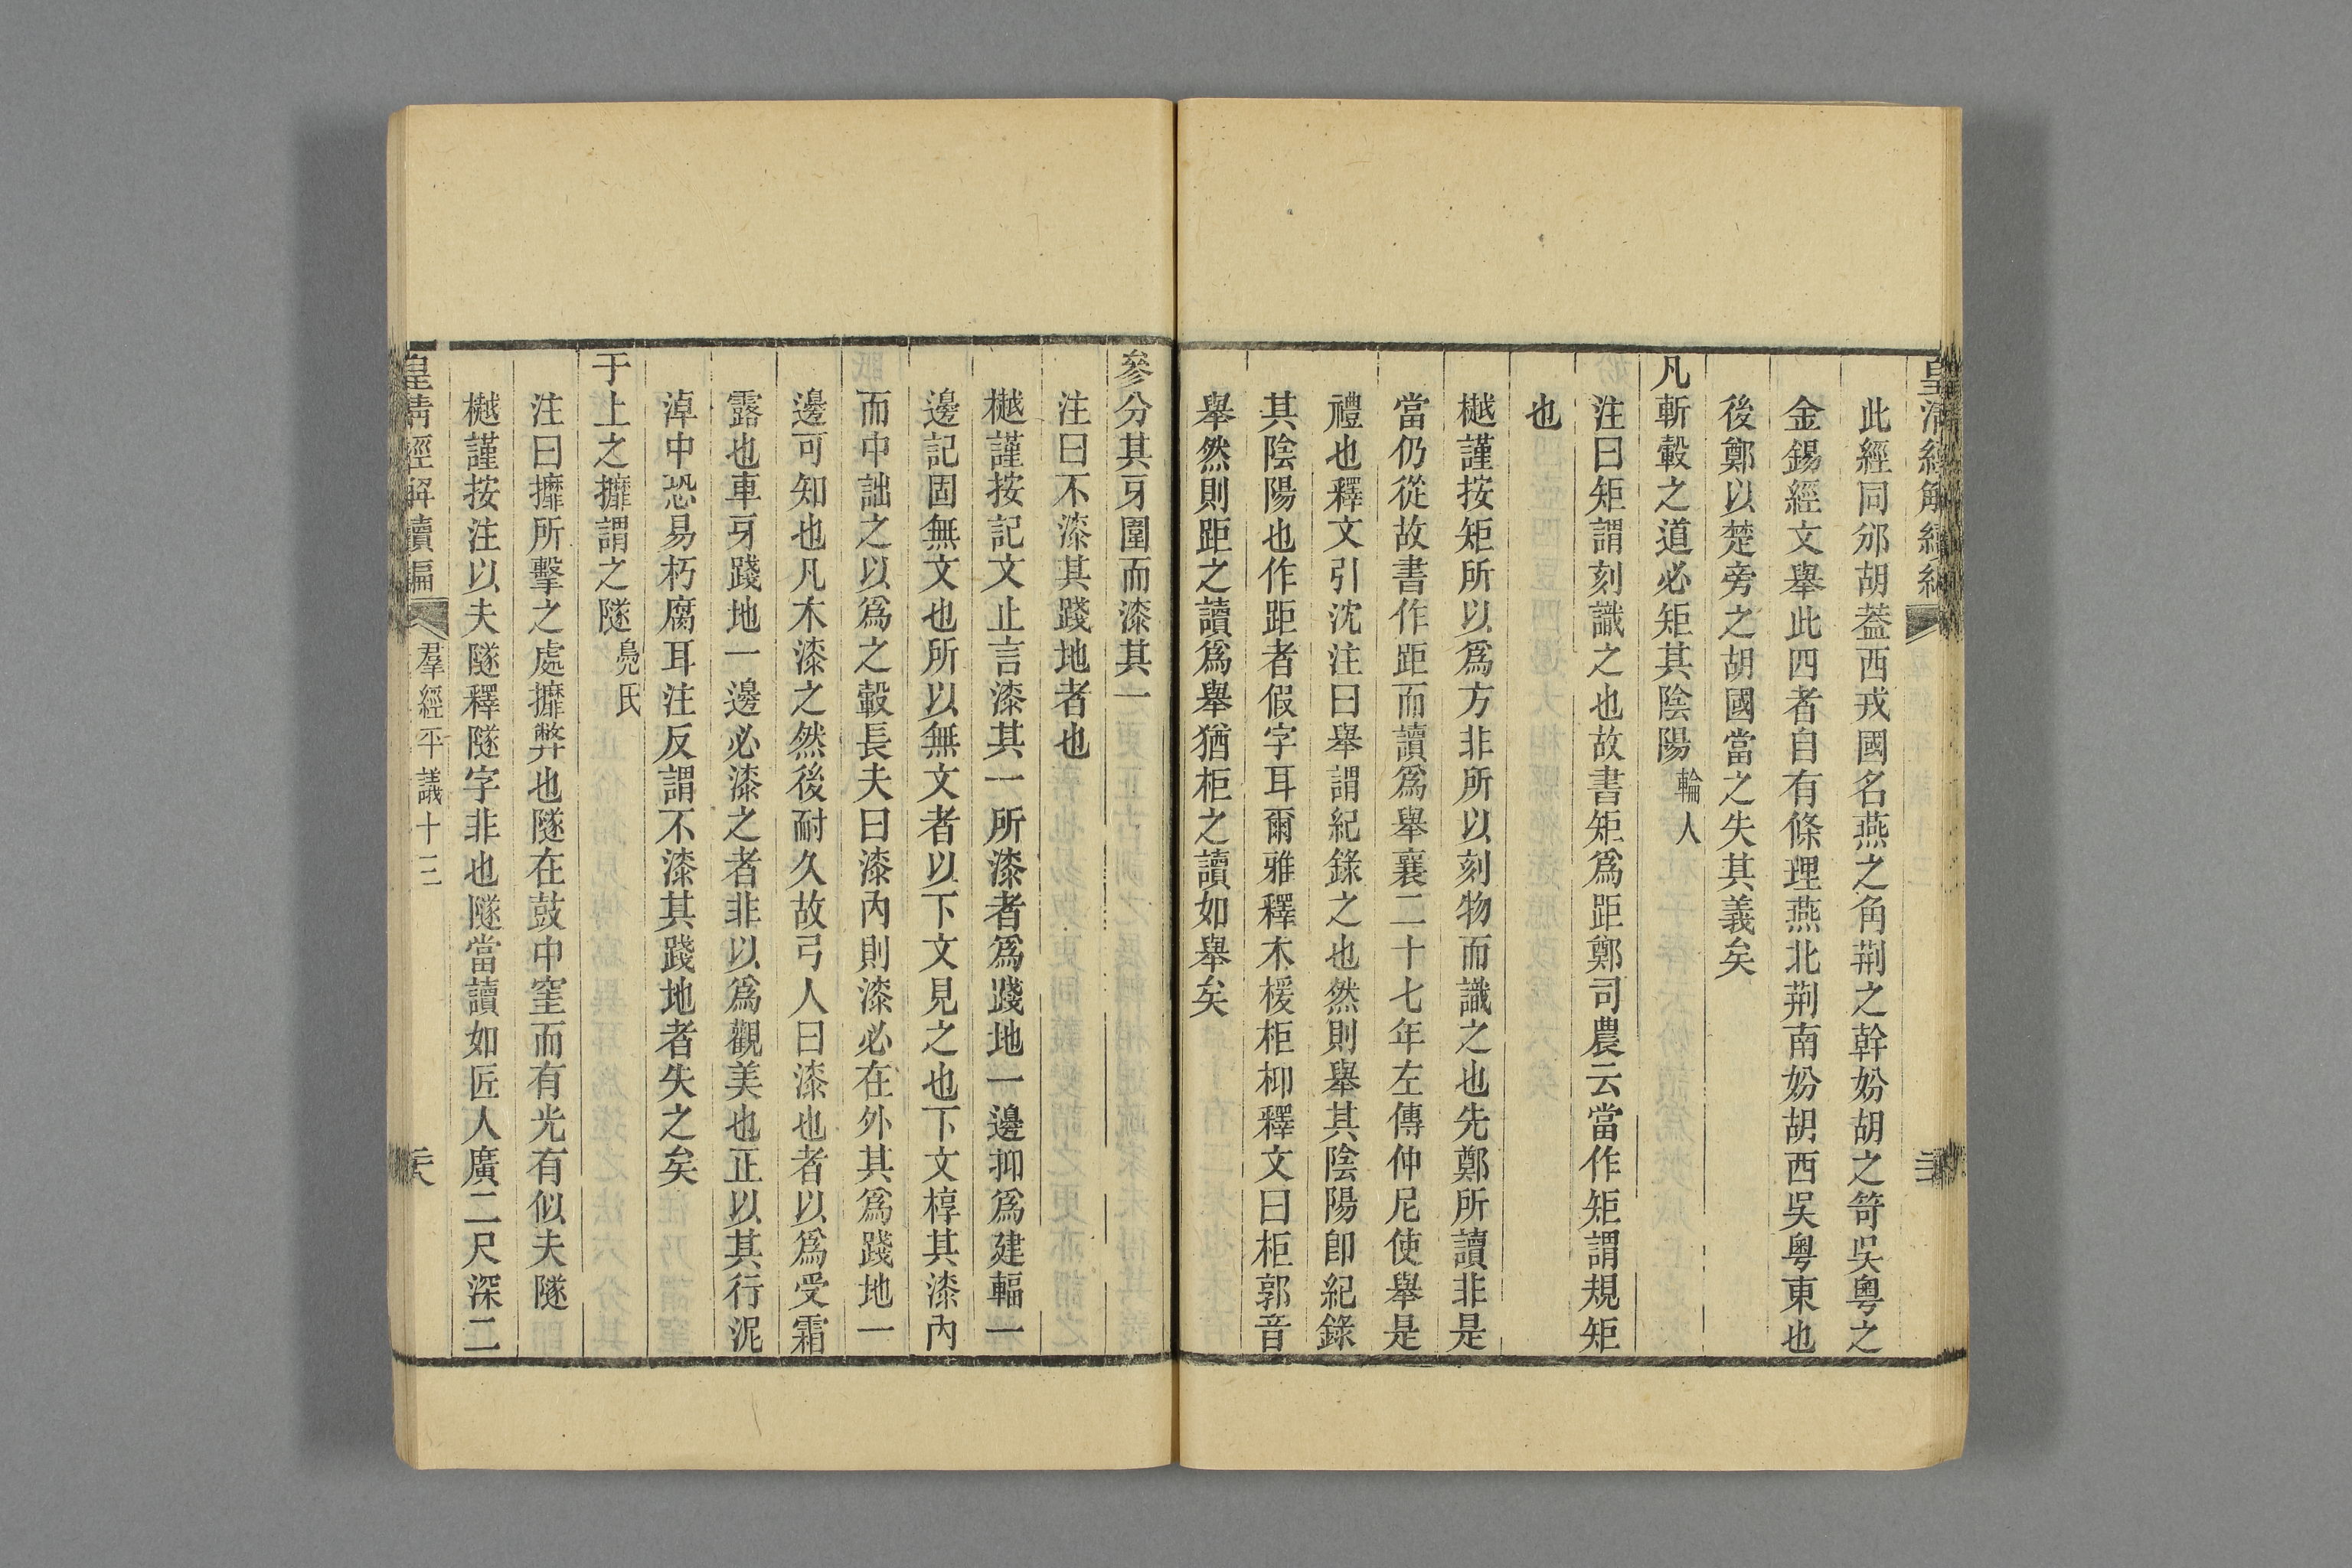 皇清經解續編
此經同邠胡葢西戎國名燕之角荆之幹妢胡之笴吳粤之
金錫經文舉此四者自有條理燕北荆南妢胡西吳粤東也
後鄭以楚旁之胡國當之失其義矣
凡斬轂之道必矩其陰陽輪人
注曰矩謂刻識之也故書矩爲距鄭司農云當作矩謂規矩
也
樾謹按矩所以爲方非所以刻物而識之也先鄭所讀非是
當仍從故書作距而讀爲舉襄二十七年左傳仲尼使舉是
禮也釋文引沈注曰舉謂紀錄之也然則舉其陰陽卽紀錄
其陰陽也作距者假字耳爾雅釋木楥柜桺釋文曰柜郭音
舉然則距之讀爲舉猶柜之讀如舉矣
參分其牙圍而漆其一
注曰不漆其踐地者也
樾謹按記文止言漆其一所漆者爲踐地一邊抑爲建輻一
邊記固無文也所以無文者以下文見之也下文椁其漆內
而中詘之以爲之轂長夫曰漆內則漆必在外其爲踐地一
邊可知也凡木漆之然後耐久故弓人曰漆也者以爲受霜
露也車牙踐地一邊必漆之者非以爲觀美也正以其行泥
淖中恐易朽腐耳注反謂不漆其踐地者失之矣
于上之攠謂之隧鳧氏
注曰攠所擊之處攠弊也隧在鼓中窐而有光有似夫隧
樾謹按注以夫隧釋隧字非也隧當讀如匠人廣二尺深二
皇清經解續編 羣經平議十三 天